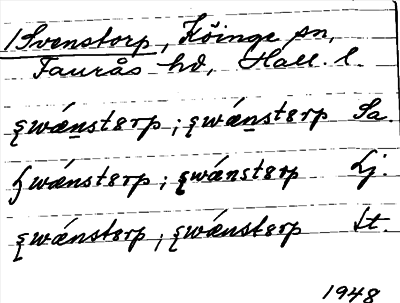 /Svenstorp, Köinge sn,
Faurås hd, Hall. l.
ꞩwǽnstɐrp ; ꞩwǽnstɐrp Sa.
ꞩwánstɐrp ; ꞩwánstɐrp Lj.
ꞩwǽnstɐrp ; ꞩwǽnstɐrp Lt.
1948